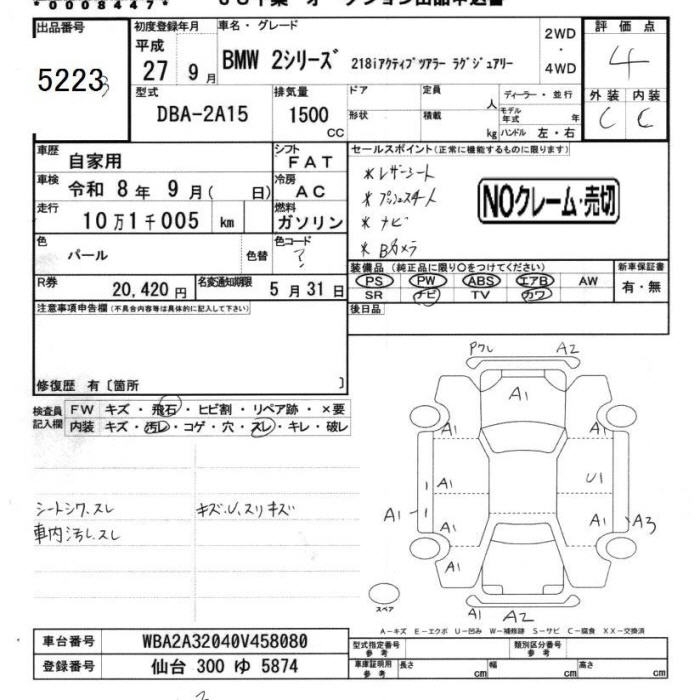 *0008447*
出品番号
5223
初度登録年月
平成
27 9月
車名・グレード
BMW 2シリーズ 218iアクティブツアラー ラグジュアリー
2WD
・
4WD
評価点
4
外装 内装
C C
型式
DBA-2A15
排気量
1500
CC
ドア
形状
定員
人
積載
kg
ディーラー・並行
モデル
年式 年
ハンドル 左・右
車歴
自家用
シフト
FAT
車検
令和 8年 9月( 日)
冷房
AC
走行
10万1千005 km
燃料
ガソリン
色
パール
色替
色コード
?
R券
20,420円
名変通知期限
5月31日
セールスポイント(正常に機能するものに限ります)
*レザーシート
*プッシュスタート
*ナビ
*Bカメラ
NOクレーム・売切
装備品(純正品に限り○をつけてください)
PS PW ABS エアB AW
SR ナビ TV カワ
新車保証書
有・無
後日品
注意事項申告欄(不具合内容等は具体的に記入して下さい)
修復歴 有〔箇所 〕
検査員
記入欄
FW キズ・飛石・ヒビ割・リペア跡・×要
内装 キズ・汚レ・コゲ・穴・スレ・キレ・破レ
シートシワ、スレ
車内汚レ、スレ
キズ、U、スリキズ
Pクレ A2
A1
A1 A1
A1 U1
A1 A1
A1 A1
A3
A1
A1 A2
スペア
A-キズ E-エクボ U-凹み W-補修跡 S-サビ C-腐食 XX-交換済
車台番号
WBA2A32040V458080
登録番号
仙台 300 ゆ 5874
型式指定番号
参考
類別区分番号
参考
車庫証明用
参考
長さ cm 幅 cm 高さ cm